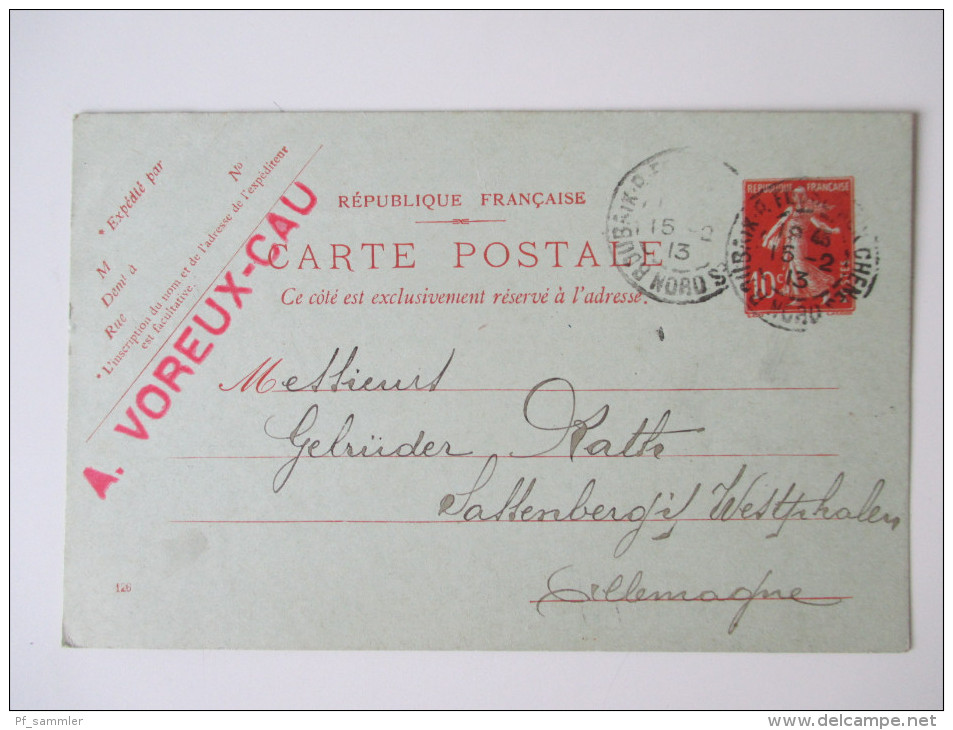 * Expédié par
M
Demt à
Rue
No
* L'inscription du nom et de l'adresse de l'expéditeur
est facultative.
A. VOREUX-CAU
RÉPUBLIQUE FRANÇAISE
CARTE POSTALE
Ce côté est exclusivement réservé à l'adresse.
ROUBAIX
15 -2
13
NORD
REPUBLIQUE FRANÇAISE
10 c
15 -2
13
NORD
Messieurs
Gebrüder
Sassenberg i/ Westphalen
Allemagne
126
Pf_sammler
www.delcampe.net